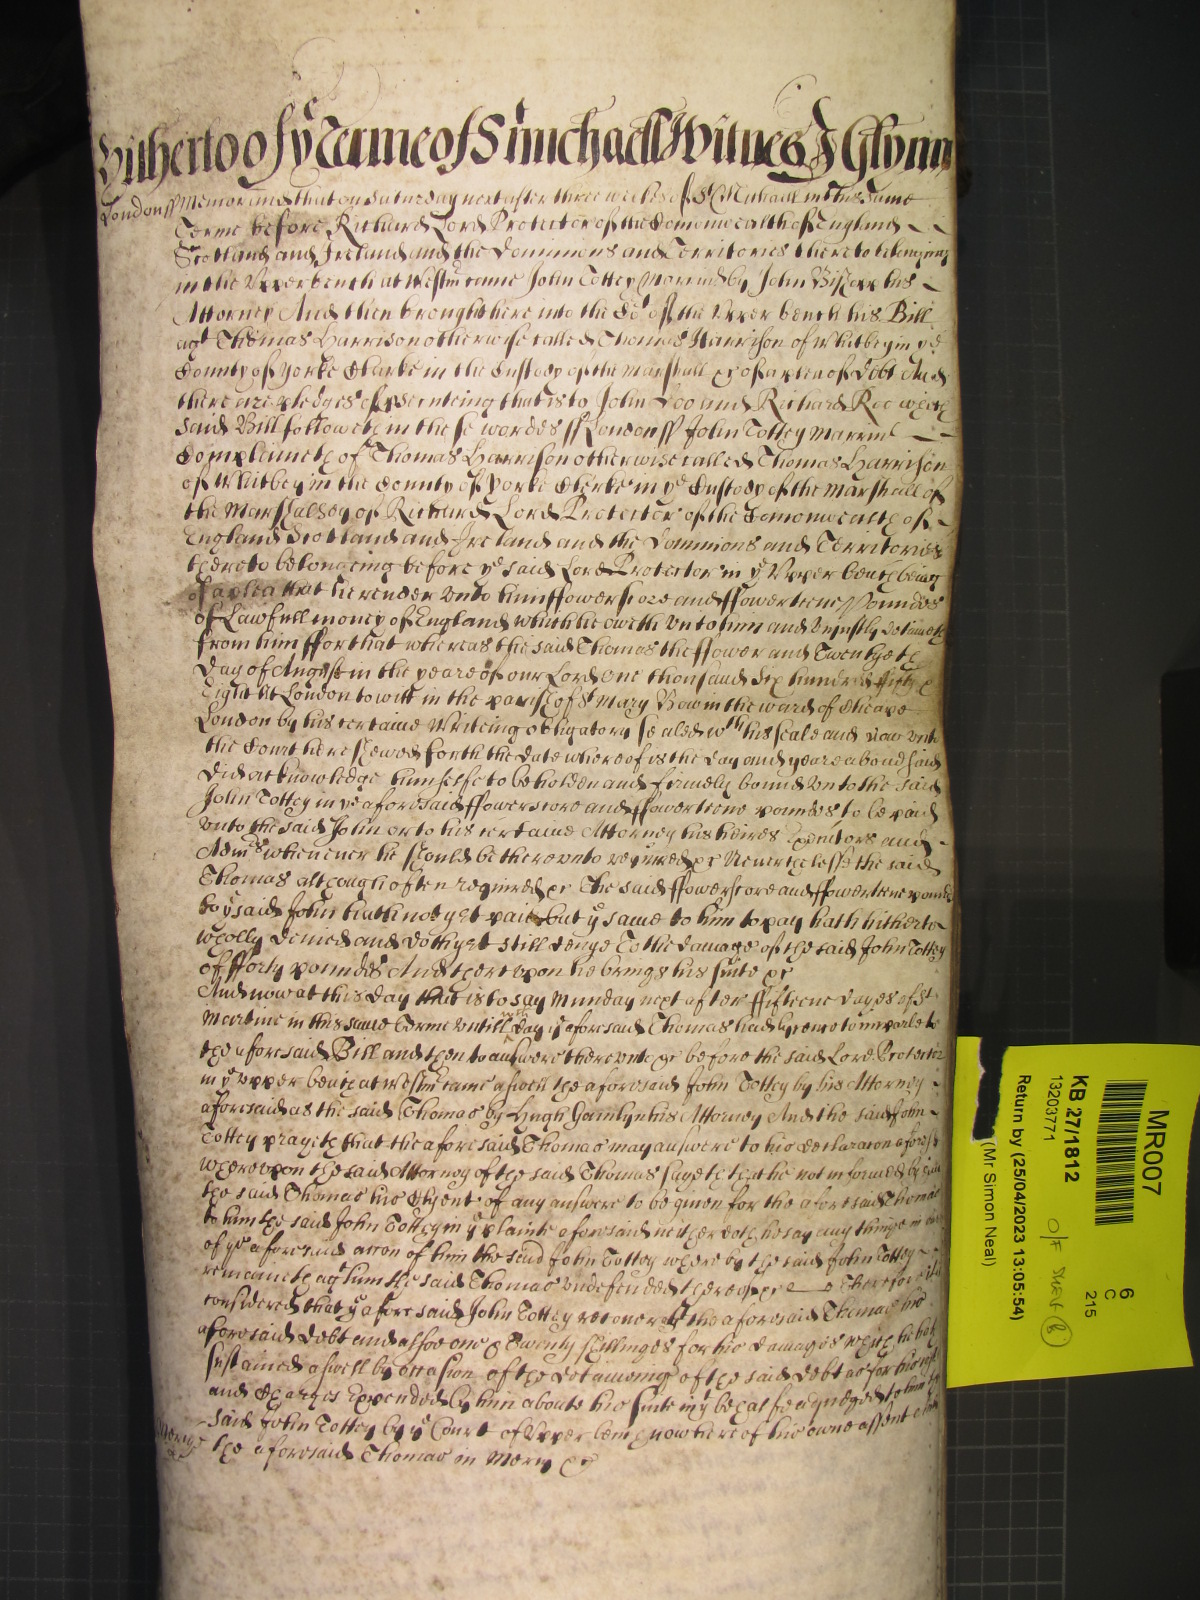 Hitherto of ye Terme of St Michaell Witnes J Glynn
London ss Memorand that on Saturday next after three weekes of St Michaell in this same
Terme before Richard Lord Protector of the Comonwealth of England
Scotland and Ireland and the Dominions and Territories thereto belonging
in the Upper bench at Westmr came John Tottey Marrinr by John Bishopp his
Attorney And then brought here into the Cort of the Upper bench his Bill
agt Thomas Harrison otherwise called Thomas Harrison of Whitbey in ye
County of Yorke Clarke in the Custody of the Marshall &c of a plea of Debt And
there are pledges of psenteing that is to John Doo and Richard Roo wch
said Bill followeth in these wordes ss London ss John Tottey Marrinr
Complaineth of Thomas Harrison otherwise called Thomas Harrison
of Whitbey in the County of Yorke Clerke in ye Custody of the Marshall of
the Marshalsey of Richard Lord Protector of the Comonwealth of
England Scotland and Ireland and the Dominions and Territories
thereto belonging before ye said Lord Protector in ye Upper bench being
of a plea that he render unto him ffower score and ffowerteene Poundes
of Lawfull money of England which he oweth unto him and unjustly detaineth
from him ffor that whereas the said Thomas the ffower and Twentyeth
day of August in the yeare of our Lord one thousand six hundred fifty &
Eight at London to witt in the parish of St Mary Bow in the ward of Cheape
London by his certaine Writeing obligatory sealed wth his seale and now unto
the Court here shewed forth the date whereof is the day and yeare abovesaid
did acknowledge himselfe to be holden and firmely bound unto the said
John Tottey in ye aforesaid ffowerscore and ffowerteene poundes to be paid
unto the said John or to his certaine Attorney his heires Executors and
Admrs whenever he should be thereunto required &c Neverthelesse the said
Thomas although often required &c The said ffowerscore and ffowerteene pounds
to ye said John hath not yet paid but ye same to him to pay hath hitherto
wholly denied and doth yet still denye To the damage of the said John Tottey
of fforty poundes And thereupon he brings his suite &c
And now at this day that is to say Munday next after ffifteene dayes of St
Martine in this same terme untill wch day ye aforesaid Thomas had lycence to imparle to
the aforesaid Bill and then to answere thereunto &c before the said Lord Protector
in ye Upper bench at Westmr came aswell the aforesaid John Tottey by his Attorney
aforesaid as the said Thomas by Hugh Hamlyn his Attorney And the said John
Tottey prayeth that the aforesaid Thomas may answere to his declaracon aforesd
whereupon the said Attorney of the said Thomas sayeth that he is not informed by
the said Thomas his Clyent of any answere to be given for the aforesaid Thomas
to him the said John Tottey in ye plainte aforesaid neither doth he say any thinge in
of ye aforesaid accon of him the said John Tottey whereby the said John Tottey
remaineth agt him the said Thomas undefended thereof &c Therefore it is
considered that ye aforesaid John Tottey recover agt the aforesaid Thomas his
aforesaid debt and alsoe one & Twenty shillinges for his damages which he hath
sustained aswell by occasion of the detaineing of the said debt as for his
and Charges Expended by him aboute his suite in ye behalfe adjudged to him the
said John Tottey by ye Court of Upper bench now here of his owne assent And
the aforesaid Thomas in Mercy &c
Mercy
MR007
6
C
215
KB 27/1812
13203771
Return by (25/04/2023 13:05:54)
(Mr Simon Neal)
O/F